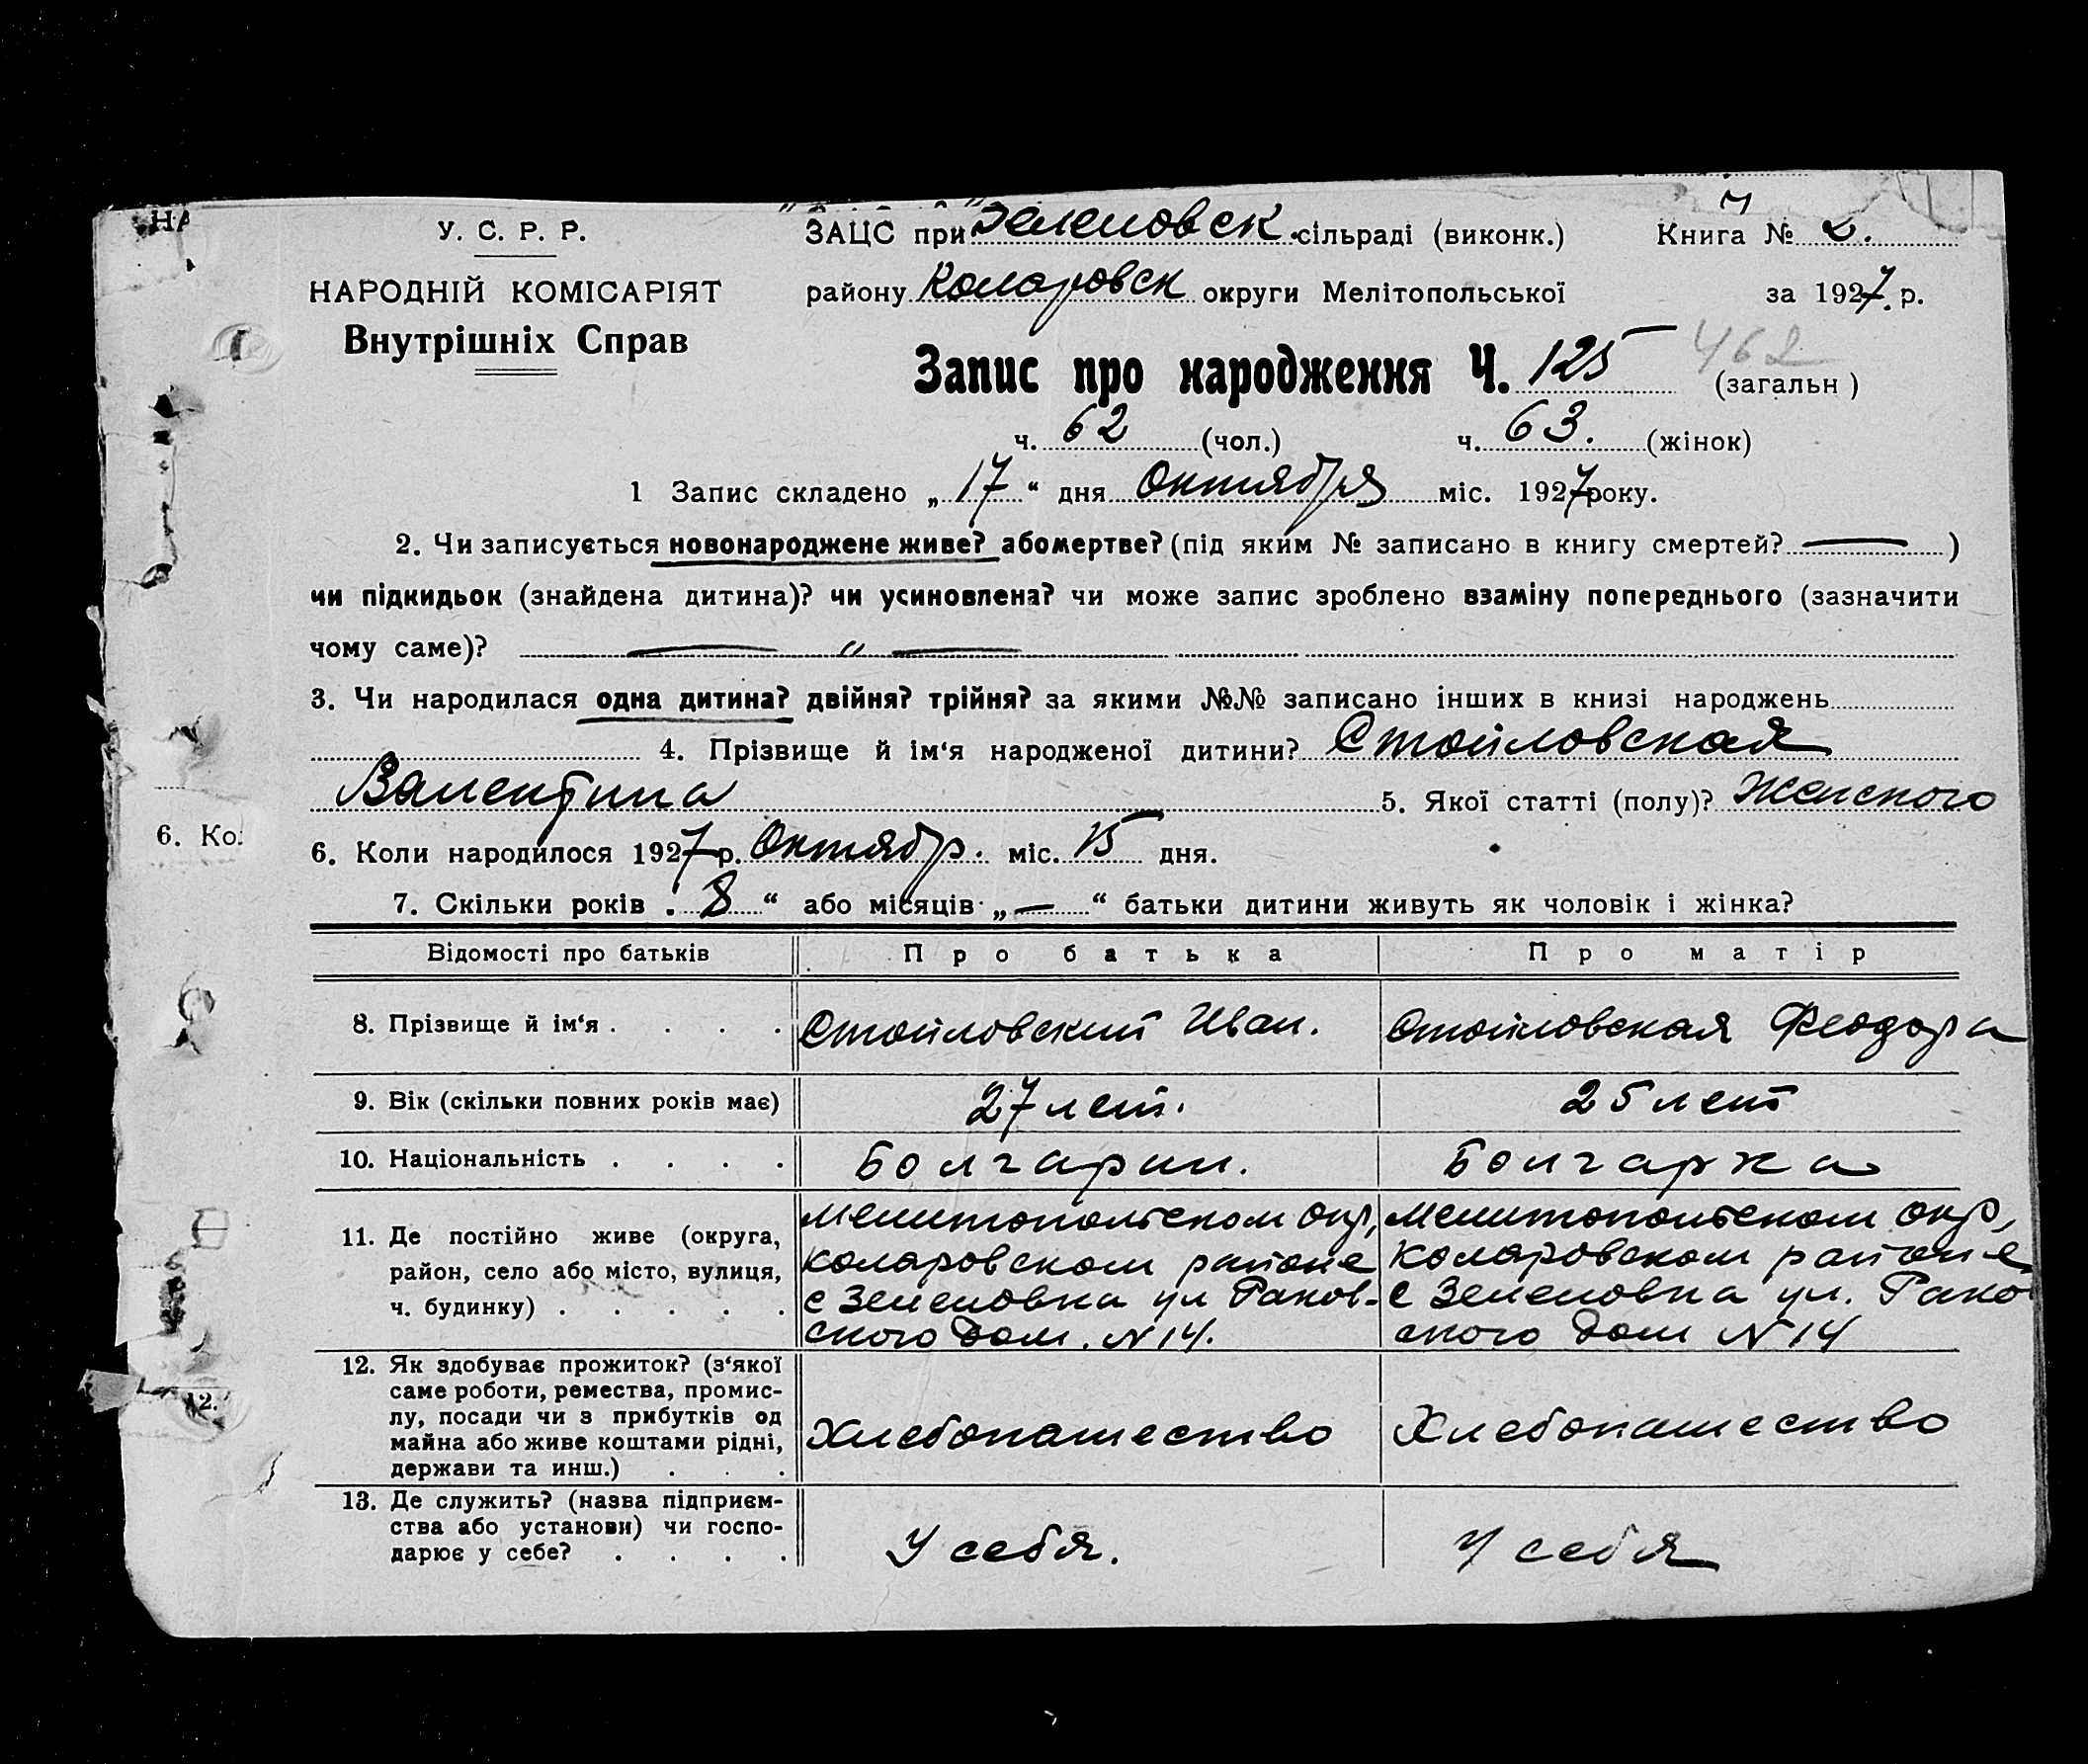 У. С. Р. Р.
НАРОДНІЙ КОМІСАРІЯТ
Внутрішніх Справ
ЗАЦС при Зеленовск. сільраді (виконк.) Книга № 2.
району Коларовск округи Мелітопольської за 1927. р.
Запис про народження Ч. 125 462 (загальн)
ч. 62 (чол.) ч. 63. (жінок)
1 Запис складено „ 17 “ дня Октября міс. 1927 року.
2. Чи записується новонароджене живе? або мертве? (під яким № записано в книгу смертей? — )
чи підкидьок (знайдена дитина)? чи усиновлена? чи може запис зроблено взаміну попереднього (зазначити
чому саме)? — „ —
3. Чи народилася одна дитина? двійня? трійня? за якими №№ записано інших в книзі народжень
4. Прізвище й ім‘я народженої дитини? Стойловская
Валентина 5. Якої статті (полу)? Женского
6. Ко.
6. Коли народилося 1927 р. Октябр. міс. 15 дня.
7. Скільки років „ 8 “ або місяців „ — “ батьки дитини живуть як чоловік і жінка?
Відомості про батьків Про батька Про матір
8. Прізвище й ім‘я . . . . Стойловский Иван. Стойловская Феодора
9. Вік (скільки повних років має) 27 лет. 25 лет
10. Національність . . . . Болгарин. Болгарка
11. Де постійно живе (округа,
район, село або місто, вулиця,
ч. будинку) . . . . .
Мелитопольском окр,
Коларовском районе
с Зеленовка ул Раков-
ского дом. N 14.
Мелитопольском окр,
Коларовском районе
с Зеленовка ул. Рако
ского дом N 14
12. Як здобуває прожиток? (з‘якої
саме роботи, ремества, промис-
лу, посади чи з прибутків од
майна або живе коштами рідні,
держави та инш.) . . .
Хлебопашество Хлебопашество
13. Де служить? (назва підприєм-
ства або установи) чи госпо-
дарює у себе? . . . .
У себя. У себя